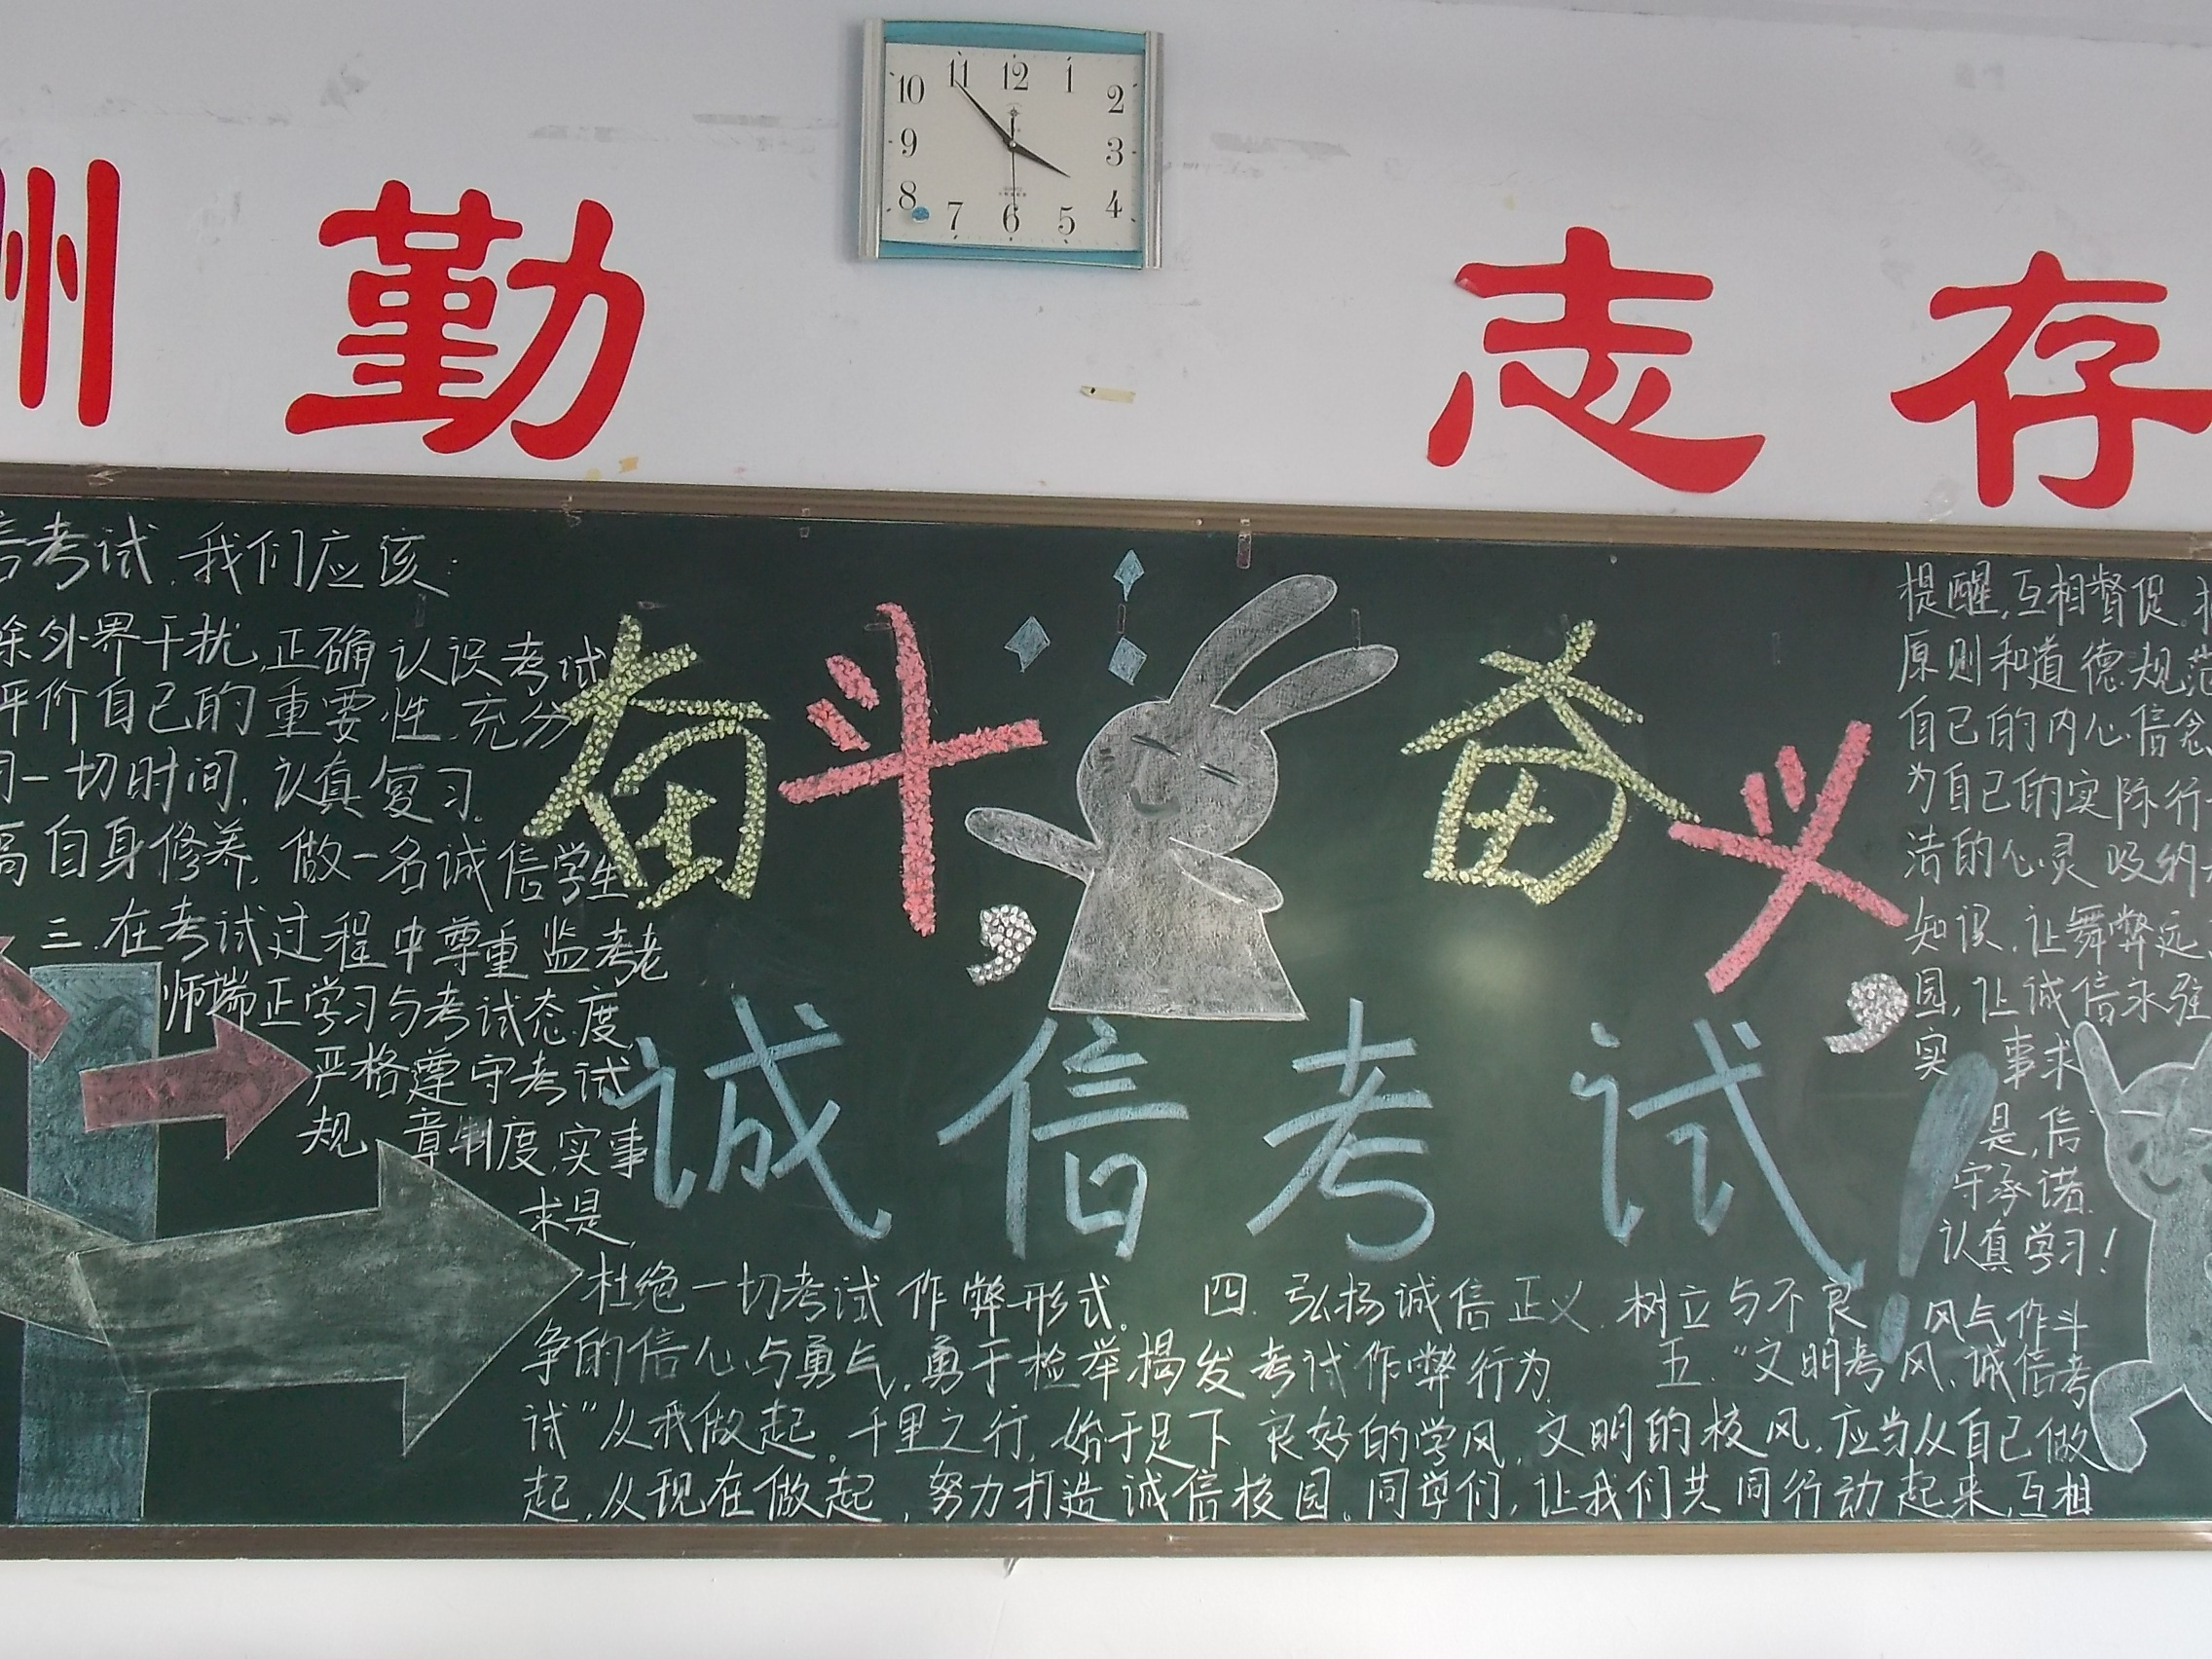 11 12 1
10 2
9 3
8 4
7 6 5
勤 志 存
考试，我们应该：
除外界干扰，正确认识考试
评价自己的重要性，充分
一切时间，认真复习。
高自身修养，做一名诚信学生
三.在考试过程中尊重监考老
师端正学习与考试态度，
严格遵守考试
规章制度，实事
求是，
奋斗，
奋义，
诚信考试！
杜绝一切考试作弊形式。 四.弘扬诚信正义，树立与不良风气作斗
争的信心与勇气，勇于检举揭发考试作弊行为 五.“文明考风，诚信考
试”从我做起。千里之行，始于足下 良好的学风，文明的校风，应当从自己做
起，从现在做起，努力打造诚信校园。同学们，让我们共同行动起来，互相
提醒，互相督促，
原则和道德规范
自己的内心信念
为自己的实际行
洁的心灵吸纳
知识，让舞弊远
园，让诚信永驻
实事求
是，信
守承诺，
认真学习！